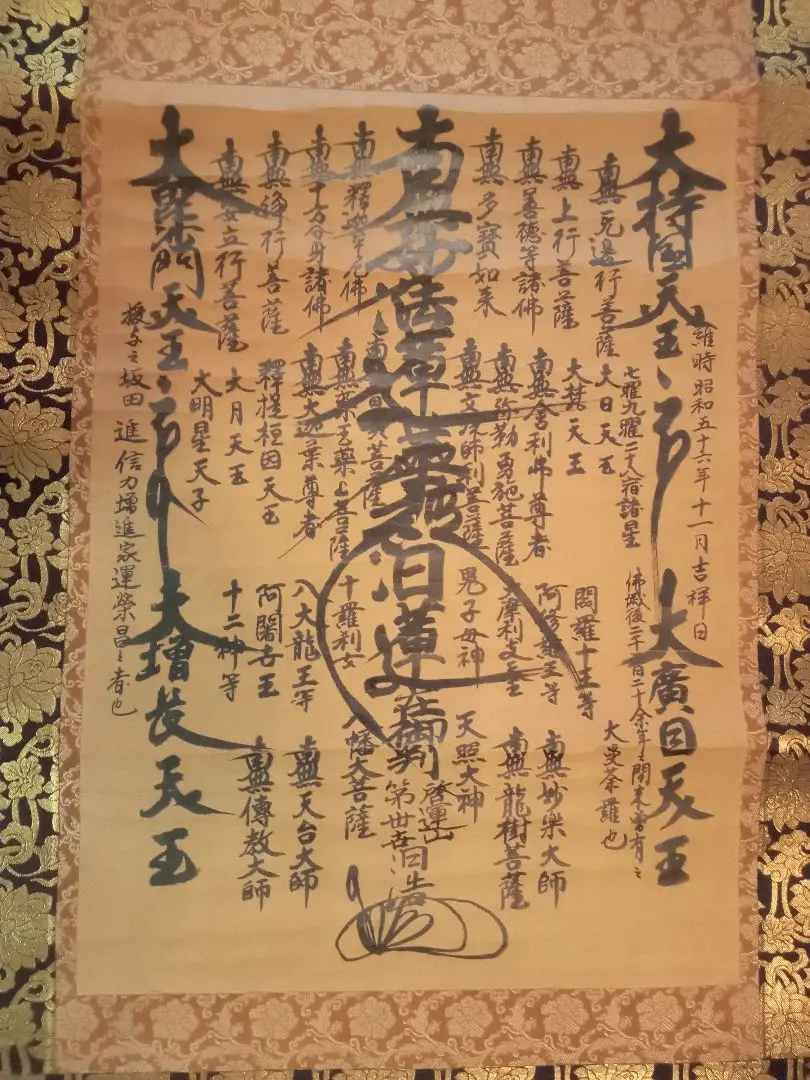 維時昭和五十六年十一月吉祥日
大持國天王
南無無邊行菩薩
南無上行菩薩
南無善徳等諸佛
南無多寳如来
南無妙法蓮華経
南無釋迦牟尼佛
南無十方分身諸佛
南無浄行菩薩
南無安立行菩薩
大毘沙門天王
七曜九曜二十八宿諸星
大日天王
大梵天王
南無舎利弗尊者
南無弥勒勇施菩薩
南無文殊師利菩薩
南無普賢菩薩
南無薬王薬上菩薩
南無大迦葉尊者
釋提桓因天王
大月天王
大明星天子
授与之坂田 進 信力増進家運榮昌之者也
佛滅後二千二百二十余年之間未曽有之
大曼荼羅也
大廣目天王
閻羅十王等
阿修羅王等
大摩利支天王
鬼子母神
日蓮
在御判
十羅刹女
八大龍王等
阿闍世王
十二神等
大増長天王
南無妙楽大師
南無龍樹菩薩
天照大神
八幡大菩薩
南無天台大師
南無傳教大師